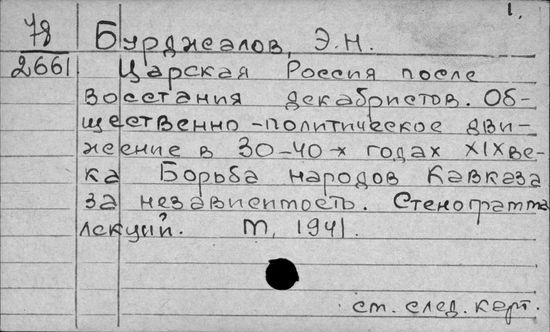 1.
78
2661
Бурджеалов, Э.Н.
Царская Россия после
восстания декабристов. Об-
щественно-политическое дви-
жение в 30-40-х годах XIX ве-
ка Борьба народов Кавказа
за независимость. Стенограмма
лекций. М, 1941.
см. след. карт.